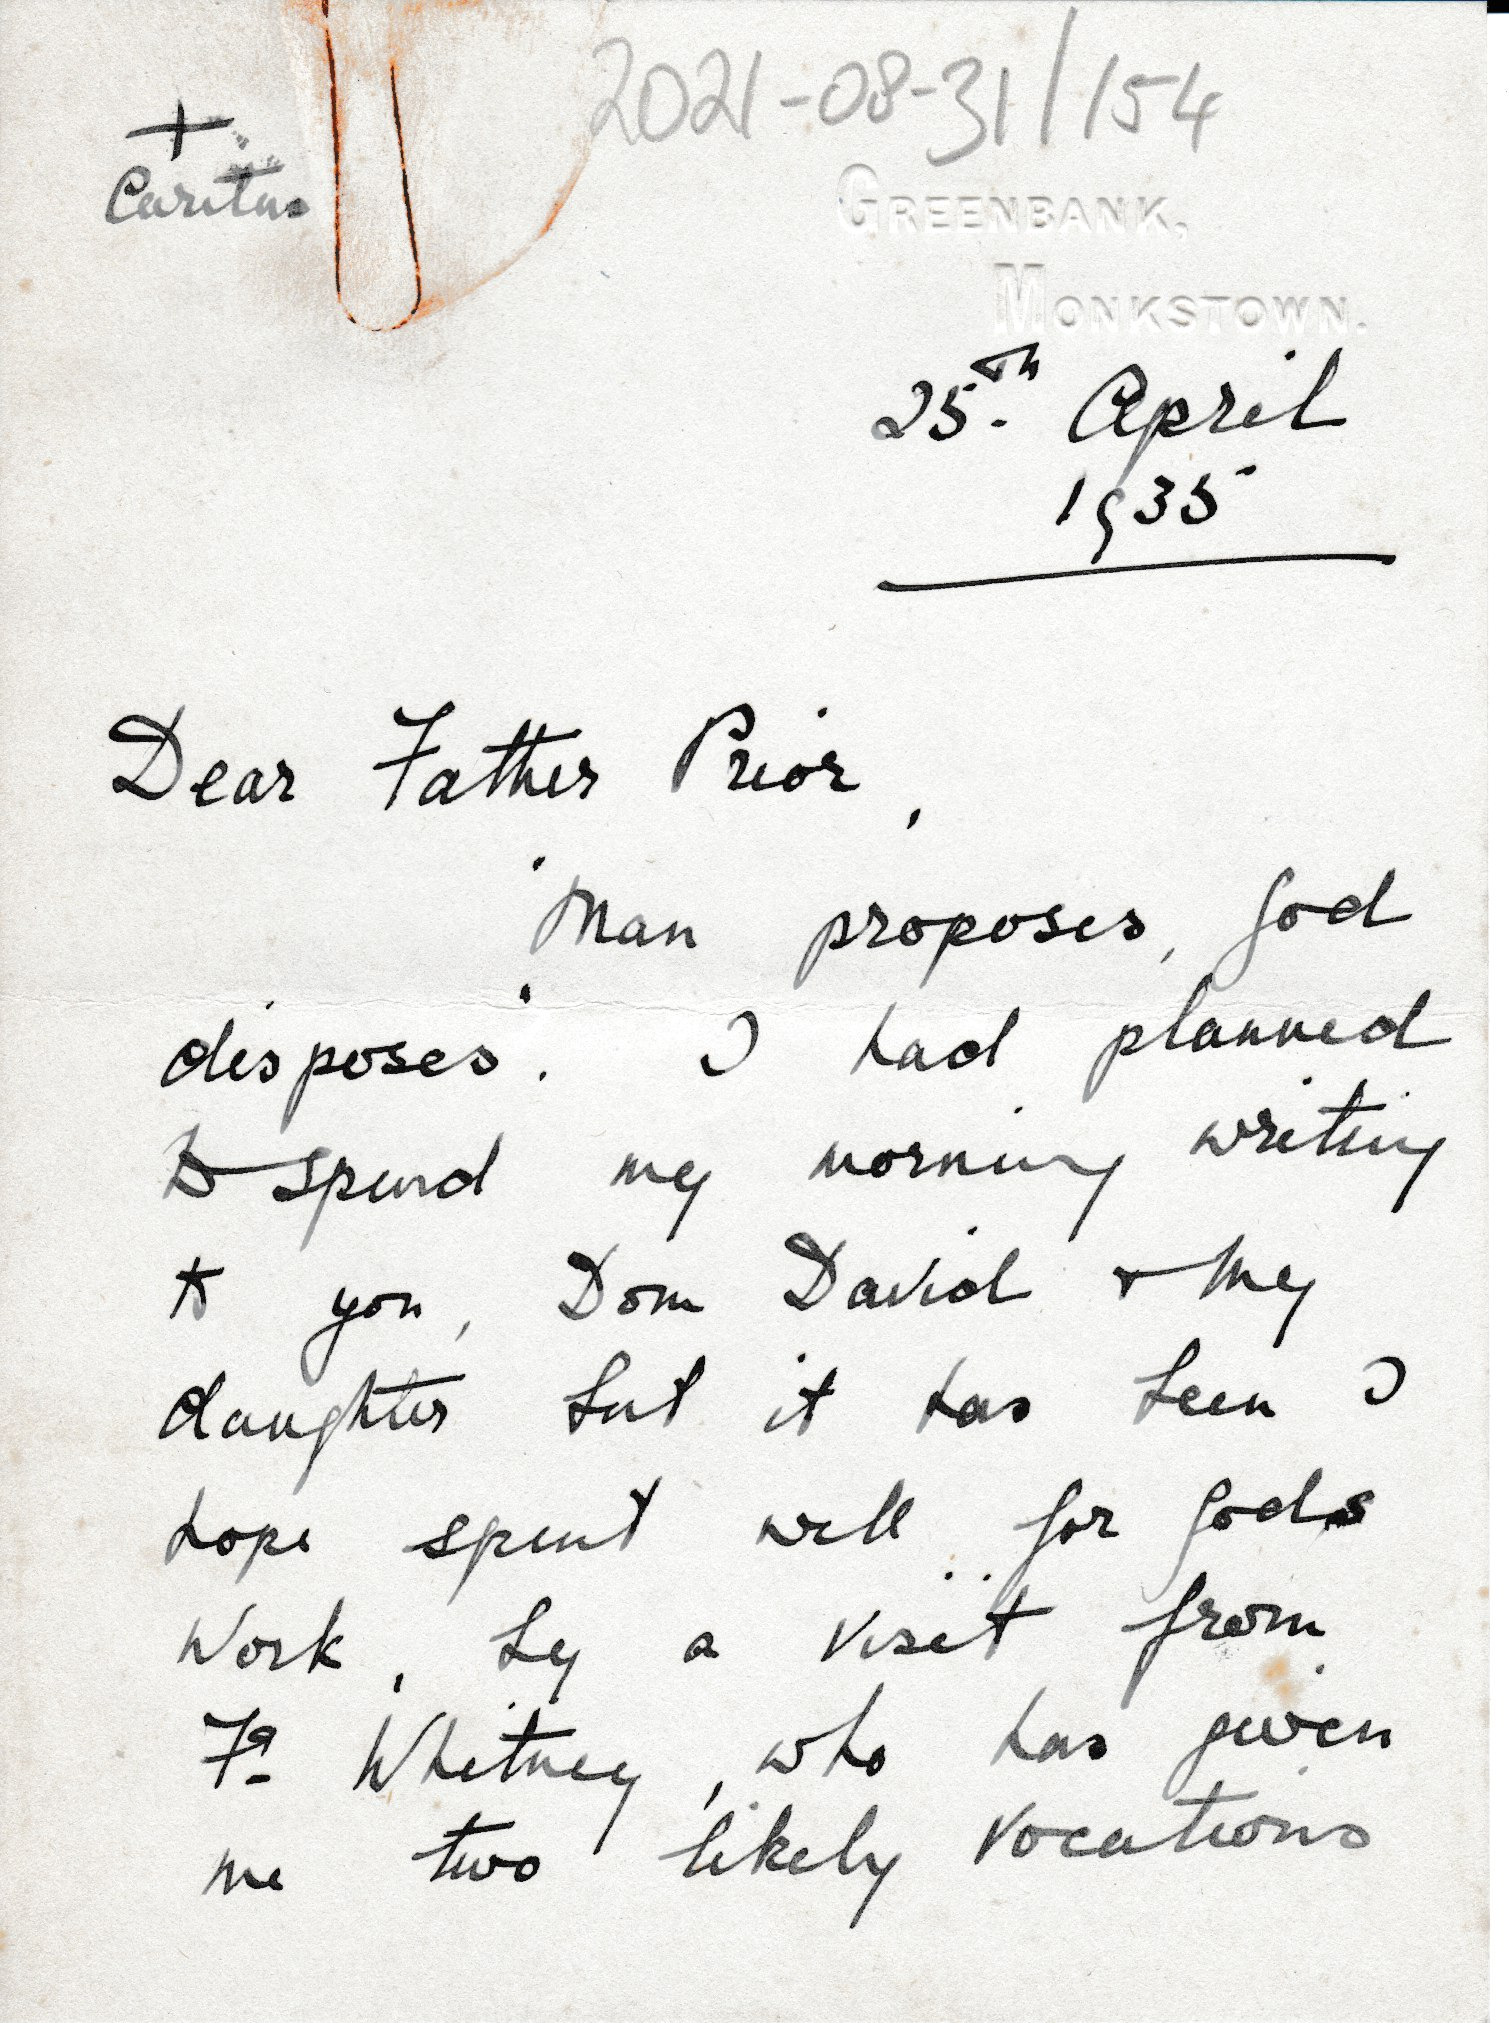 2021-08-31/154
+
Caritas
GREENBANK,
MONKSTOWN.
25th April
1935
Dear Father Prior,
"Man proposes, God
disposes". I had planned
to spend my morning writing
to you, Dom David & my
daughter but it has been I
hope spent well for Gods
work, by a visit from
Fr Whitney, who has given
me two likely vocations